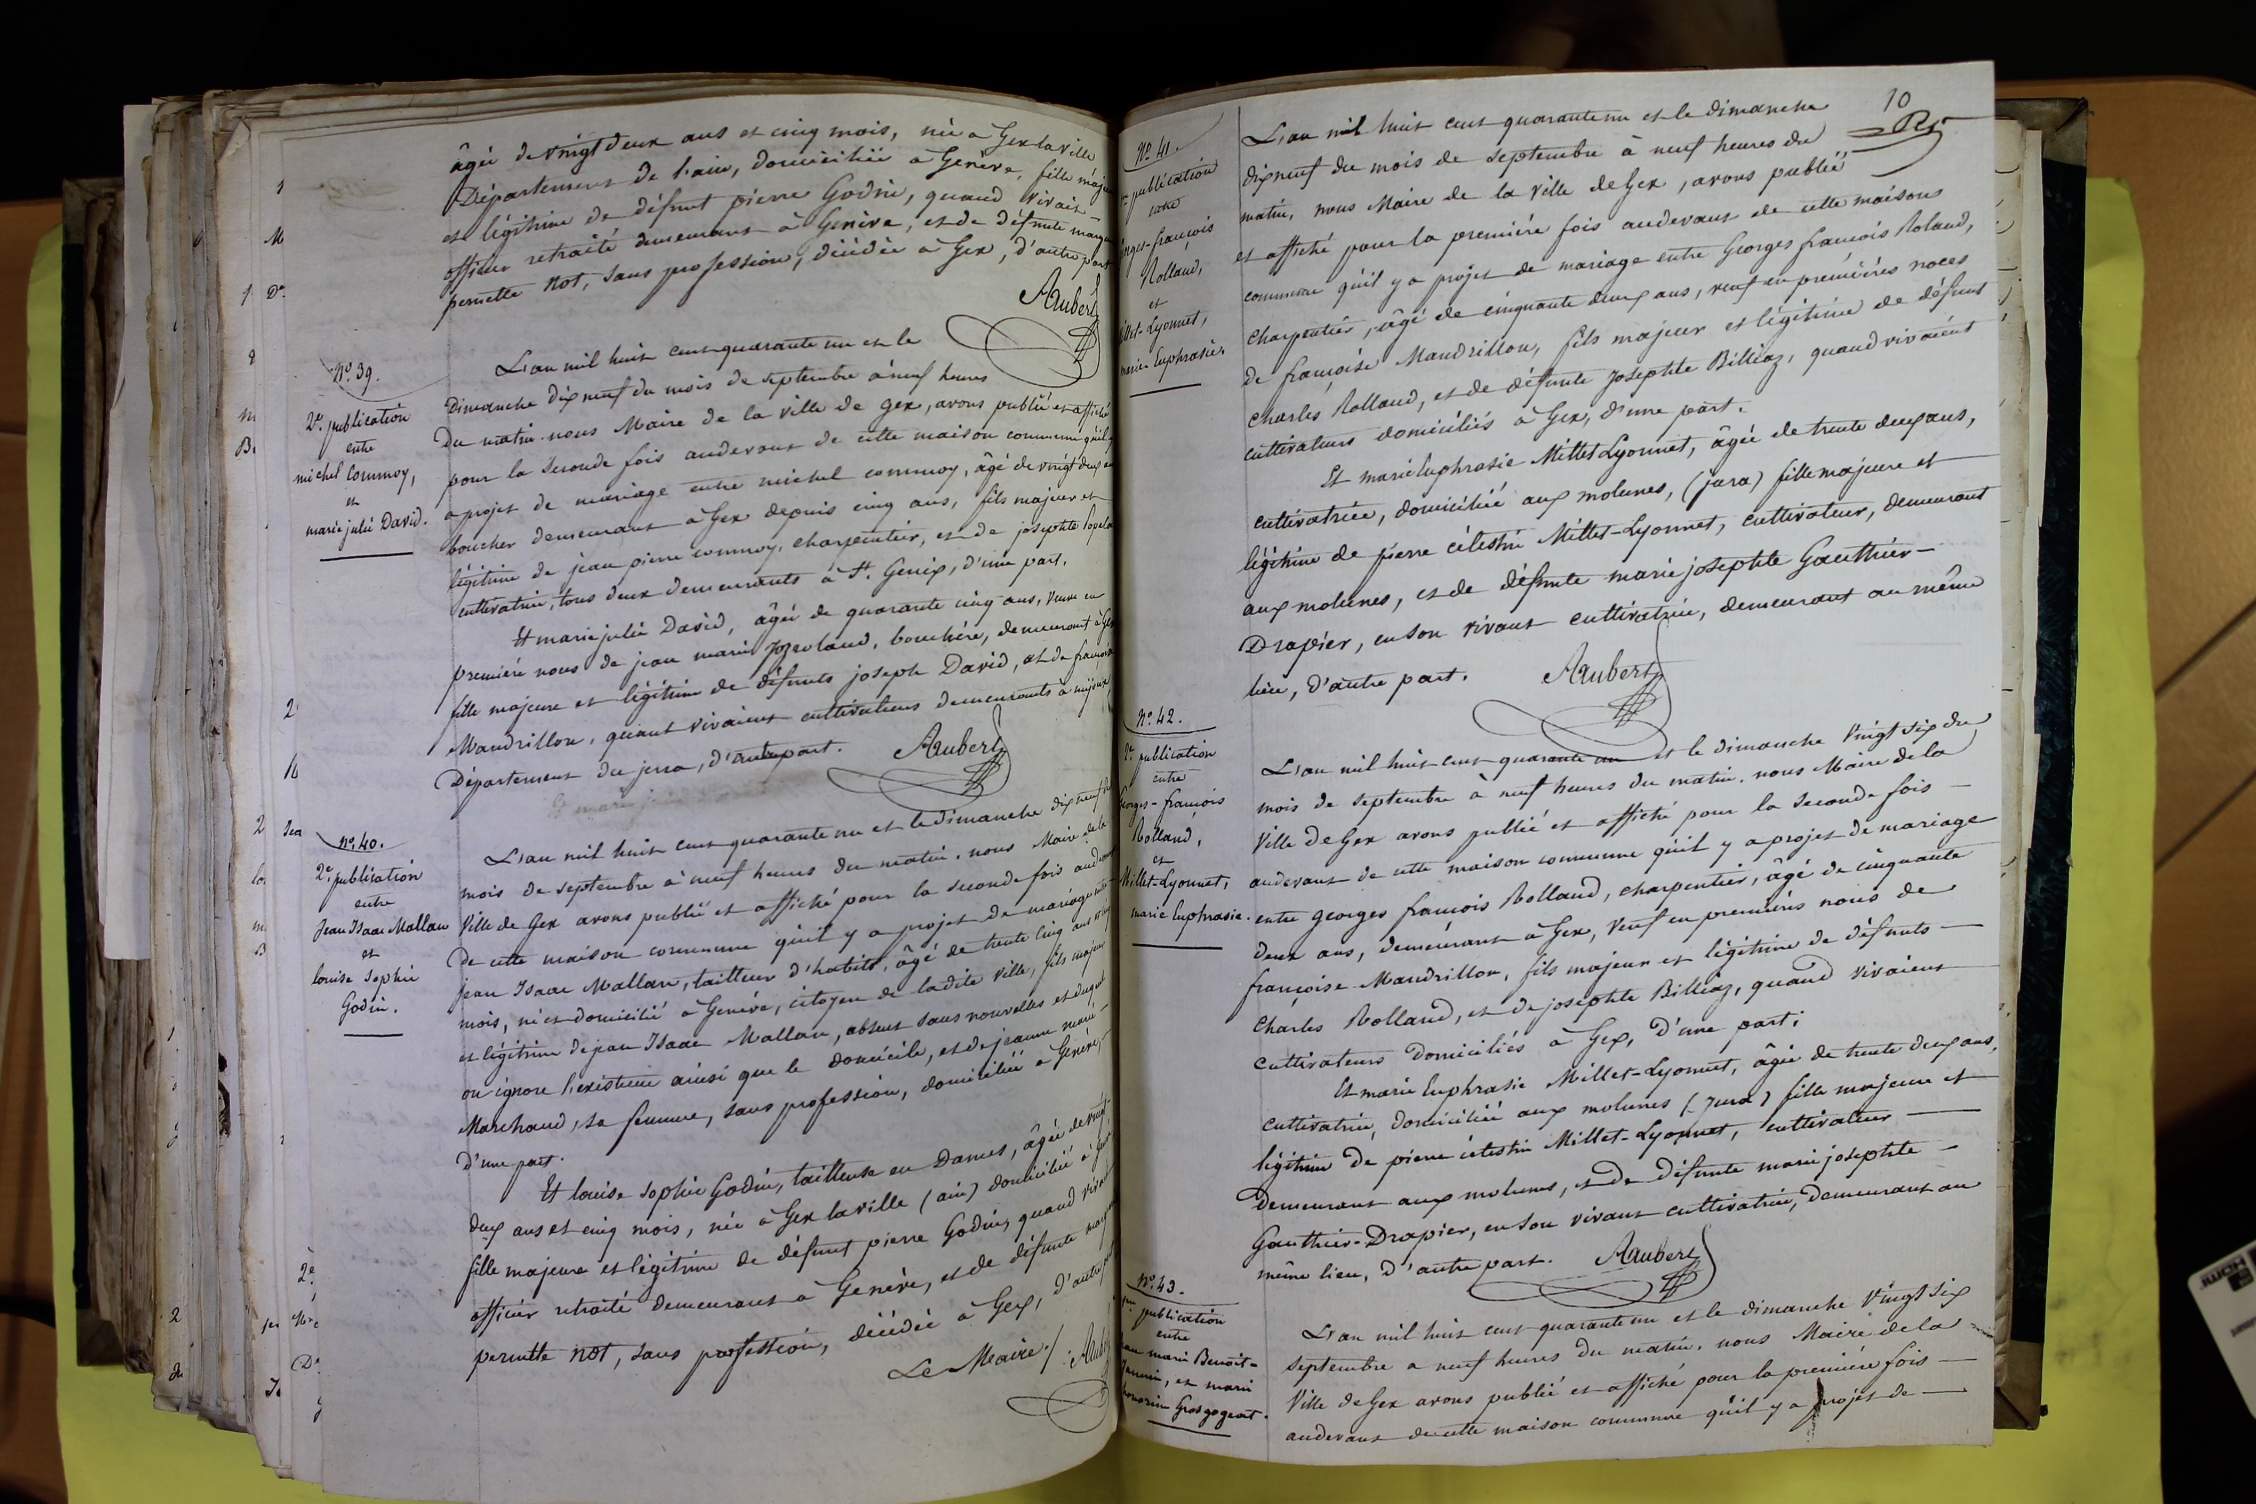 âgée de vingt deux ans et cinq mois, née à Gex la ville
Département de l'ain, domiciliée à Genève, fille maje
et légitime de défunt pierre Godin, quand vivait
officier retraité demeurant à Genève, et de défunte margue
pernette Not, sans profession, décédée à Gex, d'autre part
Aubert
N.º 39.
2e. publication
entre
michel Commoy,
et
marie julie David.
L'an mil huit cent quarante un et le
Dimanche dix neuf du mois de septembre à neuf heures
du matin. nous Maire de la ville de gex, avons publié et affiché
pour la seconde fois audevant de cette maison commune qu'il y
a projet de mariage entre michel commoy, âgé de vingt deux an
boucher demeurant à Gex depuis cinq ans, fils majeur et
légitime de jean pierre commoy, charpentier, et de josephte
cultivatrice, tous deux demeurants à St. Genix, d'une part.
Et marie julie David, âgée de quarante cinq ans, veuve en
première noces de jean marie, bouchère, demeurant à Gex
fille majeure et légitime de défunts joseph David, et de françoise
Mandrillon, quant vivaient cultivateurs demeurants à mijoux,
Département du jura, d'autre part.
Aubert
n.º 40.
2e. publication
entre
Jean Isaac Mallan
et
louise Sophie
Godin.
L'an mil huit cent quarante un et le dimanche dix neuf du
mois de septembre à neuf heures du matin. nous Maire de la
Ville de Gex avons publié et affiché pour la seconde fois audevant
de cette maison commune qu'il y a projet de mariage entre
jean Isaac Mallan, tailleur d'habits, âgé de trente cinq ans et
mois, né et domicilié à Genève, citoyen de ladite ville, fils majeur
et légitime de jean Isaac Mallan, absent sans nouvelles et duquel
on ignore l'existence ainsi que le domicile, et de jeanne marie
Marchand, sa femme, sans profession, domiciliée à Genève,
d'une part.
Et louise sophie Godin, tailleuse en Dames, âgée de vingt
deux ans et cinq mois, née à Gex la ville (ain) domiciliée à
fille majeure et légitime de défunt pierre Godin, quand vivait
officier retraité demeurant à Genève, et de défunte margue
pernette Not, sans profession, décédée à Gex, d'autre part
Le Maire / Aubert
10
N.º 41.
publication
entre
orges-françois
Rolland,
et
illet-Lyonnet,
marie Euphrasie.
L'an mil huit cent quarante un et le dimanche
dix neuf du mois de septembre à neuf heures du
matin, nous Maire de la ville de Gex, avons publié
et affiché pour la première fois audevant de cette maison
commune qu'il y a projet de mariage entre Georges françois Roland,
charpentier, âgé de cinquante deux ans, veuf en premières noces
de françoise Mandrillon, fils majeur et légitime de défunt
Charles Rolland, et de défunte Josephte Billiaz, quand vivaient
cultivateurs domiciliés à Gex, d'une part.
Et marie Euphrasie Millet Lyonnet, âgée de trente deux ans,
cultivatrice, domiciliée aux molunes, (jura) fille majeure et
légitime de pierre célestin Millet-Lyonnet, cultivateur, demeurant
aux molunes, et de défunte marie josephte Gauthier-
Drapier, en son vivant cultivatrice, demeurant au même
lieu, d'autre part.
Aubert
N.º 42.
2e. publication
entre
Georges-françois
Rolland,
et
Millet-Lyonnet,
marie Euphrasie.
L'an mil huit cent quarante un et le dimanche Vingt six du
mois de septembre à neuf heures du matin. nous Maire de la
Ville de Gex avons publié et affiché pour la seconde fois
audevant de cette maison commune qu'il y a projet de mariage
entre georges françois Rolland, charpentier, âgé de cinquante
deux ans, demeurant à Gex, Veuf en premières noces de
françoise Mandrillon, fils majeur et légitime de défunts
Charles Rolland, et de josephte Billiaz, quand vivaient
cultivateurs domiciliés à Gex, d'une part;
Et marie Euphrasie Millet-Lyonnet, âgée de trente deux ans,
cultivatrice, domiciliée aux molunes (Jura) fille majeure et
légitime de pierre célestin Millet-Lyonnet, cultivateur
demeurant aux molunes, et de défunte marie josephte
Gauthier-Drapier, en son vivant cultivatrice, demeurant au
même lieu, d'autre part.
Aubert
N.º 43.
publication
entre
marie Benoit-
, et marie
Grosgogeat.
L'an mil huit cent quarante un et le dimanche Vingt six
septembre a neuf heures du matin. nous Maire de la
Ville de Gex avons publié et affiché pour la première fois
audevant de cette maison commune qu'il y a projet de